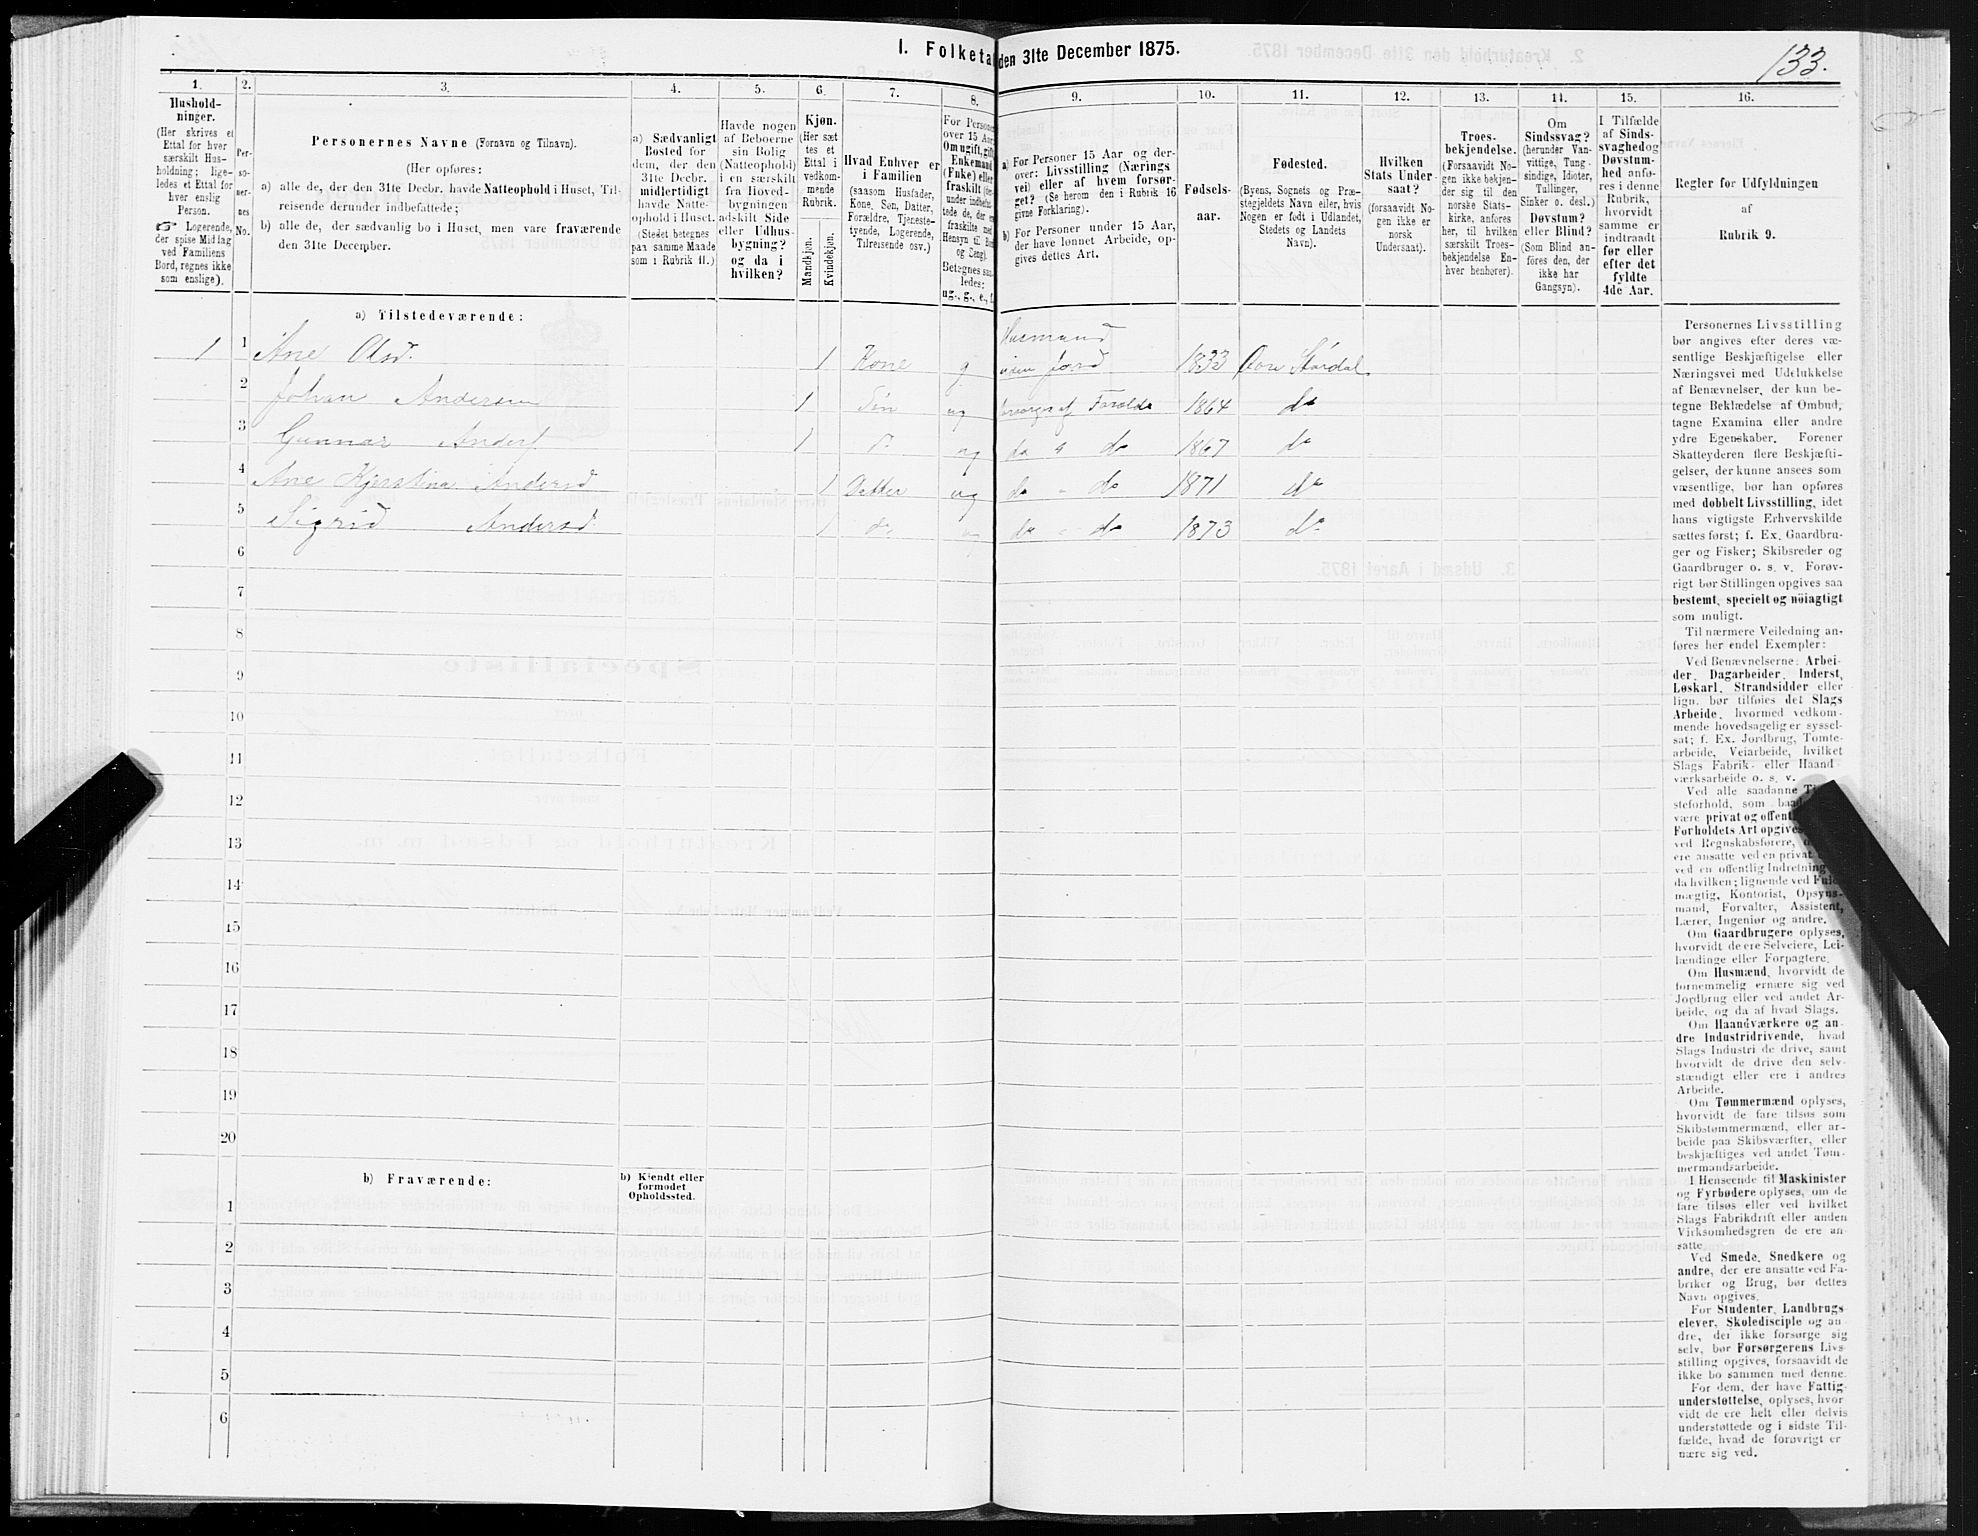 I. Folketa den 31te December 1875.
133.
1.
Hushold-
ninger.
(Her skrives et
Ettal for hver
særskilt Hus-
holdning; lige-
ledes et Ettal for
hver enslig
Person.
☞ Logerende,
der spise Middag
ved Familiens
Bord, regnes ikke
som enslige).
2.
Per-
so-
ner-
nes
No.
3.
Personernes Navne (Fornavn og Tilnavn).
(Her opføres:
a) alle de, der den 31te Decbr. havde Natteophold i Huset, Til-
reisende derunder indbefattede;
b) alle de, der sædvanlig bo i Huset, men vare fraværende
den 31te December.
4.
a) Sædvanligt
Bosted for
dem, der den
31te Decbr.
midlertidigt
havde Natte-
ophold i Huset.
(Stedet betegnes
paa samme Maade
som i Rubrik 11.)
5.
Havde nogen
af Beboerne
sin Bolig
(Natteophold)
i en særskilt
fra Hoved-
bygningen
adskilt Side
eller Udhus-
bygning?
og da i
hvilken?
6.
Kjøn.
(Her sæt
tes et
Ettal i
vedkom-
mende
Rubrik.
Mandkjøn.
Kvindekjøn.
7.
Hvad Enhver er
i Familien
(saasom Husfader,
Kone, Søn, Datter,
Forældre, Tjeneste-
tyende, Logerende,
Tilreisende osv.)
8.
For Personer
over 15 Aar:
Om ugift, gift,
Enkemand
(Enke) eller
fraskilt
Betegnes saa
ledes:
ug., g., e., f.
9.
a) For Personer 15 Aar og der-
over: Livsstilling (Nærings
vei) eller af hvem forsør-
get? (Se herom den i Rubrik 16
givne Forklaring).
b) For Personer under 15 Aar,
der have lønnet Arbeide, op-
gives dettes Art.
10.
Fødsels-
aar.
11.
Fødested.
(Byens, Sognets og Præ-
stegjeldets Navn eller, hvis
Nogen er født i Udlandet,
Stedets og Landets
Navn).
12.
Hvilken
Stats Under-
saat?
(forsaavidt No-
gen ikke er
norsk
Undersaat).
13.
Troes-
bekjendelse.
(Forsaavidt No-
gen ikke bekjen-
der sig til den
norske Stats-
kirke, anføres
her, til hvilken
særskilt Troes-
bekjendelse En-
hver henhører).
14.
Om
Sindssvag?
(herunder Van-
vittige, Tung-
sindige, Idioter,
Tullinger,
Sinker o. desl.)
Døvstum?
eller Blind?
(Som Blind an-
føres den, der
ikke har
Gangsyn).
15.
I Tilfælde
af Sinds-
svaghed og
Døvstum-
hed anfø-
res i denne
Rubrik,
hvorvidt
samme er
indtraadt
før eller
efter det
fyldte
4de Aar.
16.
Regler for Udfyldningen
af
Rubrik 9.
a) Tilstedeværende:
1 1 Ane Olsd. 1 Kone g Husmand
uden Jord 1833 Øvre Størdal
2 Johan Andersen 1 Søn ug forsørges af Foreldre 1864 do
3 Gunnar Anders 1 do ug do do 1867 do
4 Ane Kjerstina Andersd 1 Datter ug do " do 1871 do
5 Sigrid Andersd. 1 do ug do " do 1873 do
6
7
8
9
10
11
12
13
14
15
16
17
18
19
20
b) Fraværende:
b) Kjendt eller
formodet
Opholdssted.
1
2
3
4
5
6
Personernes Livsstilling
bør angives efter deres væ-
sentlige Beskjæftigelse eller
Næringsvei med Udelukkelse
af Benævnelser, der kun be-
tegne Beklædelse af Ombud,
tagne Examina eller andre
ydre Egenskaber. Forener
Skatteyderen flere Beskjæfti-
gelser, der kunne ansees som
væsentlige, bør han opføres
med dobbelt Livsstilling, idet
hans vigtigste Erhvervskilde
sættes først; f. Ex. Gaardbru-
ger og Fisker; Skibsreder og
Gaardbruger o. s. v. Forøv-
rigt bør Stillingen opgives saa
bestemt, specielt og nöiagtigt
som muligt.
Til nærmere Veiledning an-
føres her endel Exempler:
Ved Benævnelserne: Arbei-
der, Dagarbeider, Inderst,
Løskarl, Strandsidder eller
lign. bør tilføies det Slags
Arbeide, hvormed vedkom-
mende hovedsagelig er syssel-
sat; f. Ex. Jordbrug, Tomte-
arbeide, Veiarbeide, hvilket
Slags Fabrik- eller Haand-
værksarbeide o. s. v.
Ved alle saadanne
steforhold, som
være privat og offent
Forholdets Art opgives,
ved Regnskabsførere,
ere ansatte ved en privat
ved en offentlig Indretning
da hvilken; lignende ved Fuld-
mægtig, Kontorist, Opsyns-
mand, Forvalter, Assistent,
Lærer, Ingeniør og andre.
Om Gaardbrugere oplyses,
hvorvidt de ere Selveiere, Lei-
lændinge eller Forpagtere.
Om Husmænd, hvorvidt de
fornemmelig ernære sig ved
Jordbrug eller ved andet Ar-
beide, og da af hvad Slags.
Om Haandværkere og an-
dre Industridrivende, hvad
Slags Industri de drive, samt
hvorvidt de drive den selv-
stændigt eller ere i andres
Arbeide.
Om Tømmermænd oplyses,
hvorvidt de fare tilsøs som
Skibstømmermænd, eller ar-
beide paa Skibsværfter, eller
beskjæftiges ved andet Tøm-
mermandsarbeide.
I Henseende til Maskinister
og Fyrbødere oplyses, om de
fare tilsøs eller ved hvilket
Slags Fabrikdrift eller anden
Virksomhedsgren de ere an-
satte
Ved Smede, Snedkere og
andre, der ere ansatte ved Fa-
briker og Brug, bør dettes
Navn opgives.
For Studenter, Landbrugs-
elever, Skoledisciple og an-
dre, der ikke forsørge sig
selv, bør Forsørgerens Livs-
stilling opgives, forsaavidt de
ikke bo sammen med denne.
For dem, der have Fattig-
understøttelse, oplyses, hvor
vidt de ere helt eller delvis
understøttede og i sidste Til-
fælde, hvad de forøvrigt er
nære sig ved.